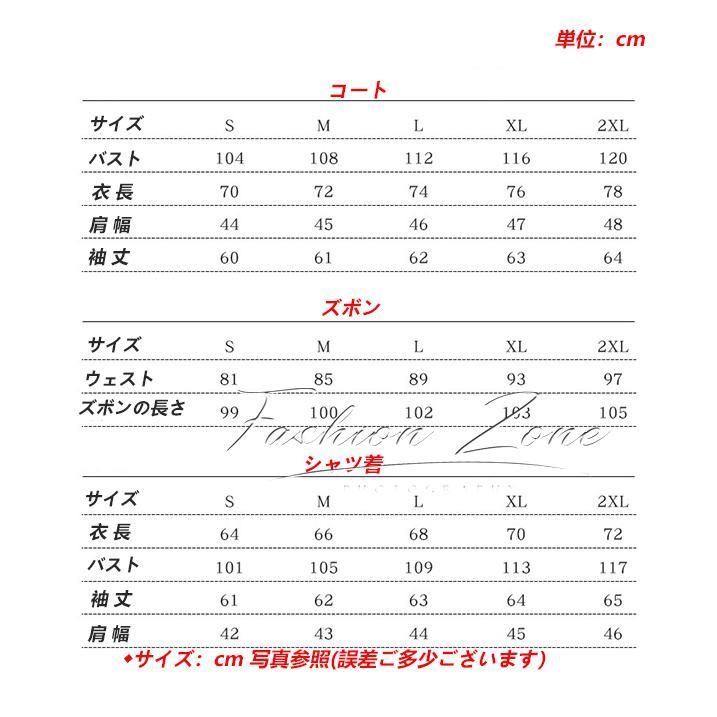 単位：cm
コート
サイズ S M L XL 2XL
バスト 104 108 112 116 120
衣長 70 72 74 76 78
肩幅 44 45 46 47 48
袖丈 60 61 62 63 64
ズボン
サイズ S M L XL 2XL
ウェスト 81 85 89 93 97
ズボンの長さ 99 100 102 103 105
Fashion Zone
シャツ着
サイズ S M L XL 2XL
衣長 64 66 68 70 72
バスト 101 105 109 113 117
袖丈 61 62 63 64 65
肩幅 42 43 44 45 46
◆サイズ：cm 写真参照(誤差ご多少ございます)